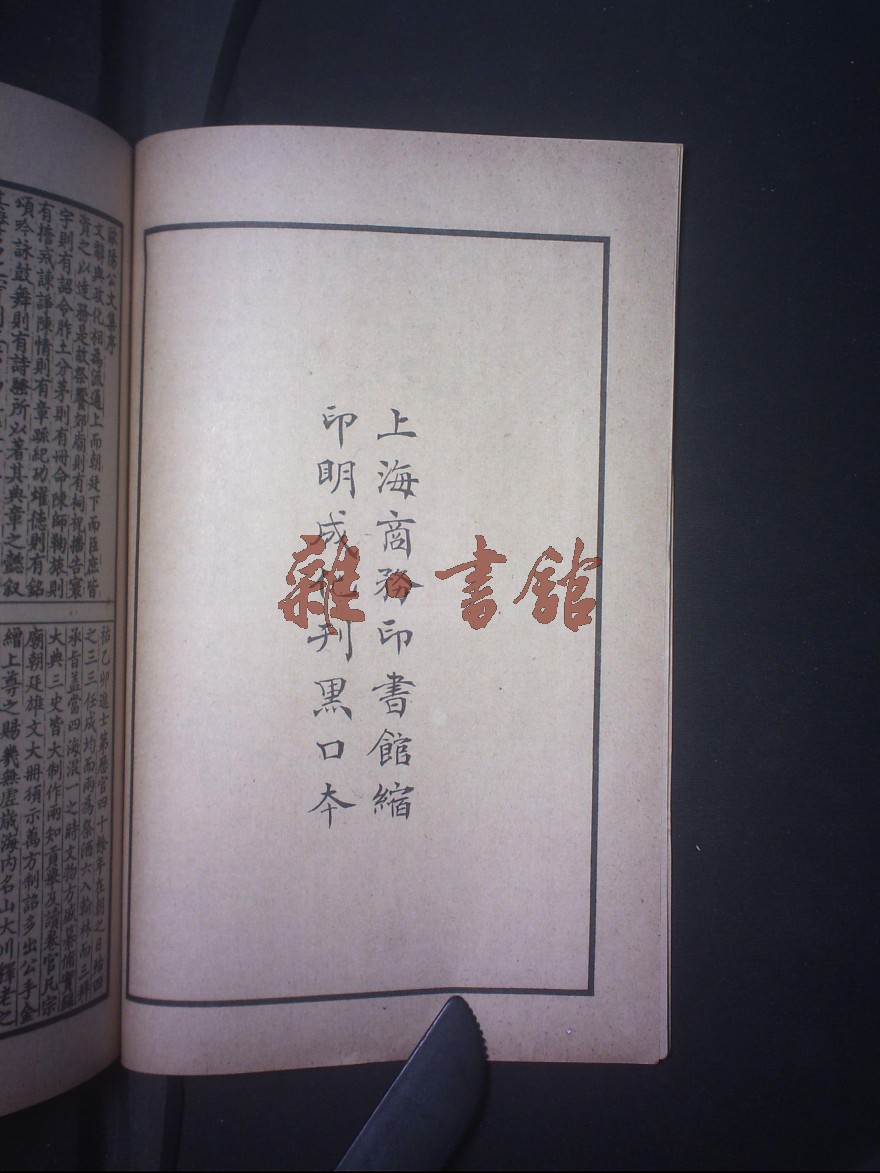 上海商務印書館縮
印明成化刊黑口本
雜書館
歐陽公文集序
文辭與政化相為流通上而朝廷下而臣庶皆
資之以達務是故祭饗郊廟則有祠祝播告寰
宇則有詔令胙土分茅則有冊命陳師鞠旅則
有誓戒諫諍陳情則有章疏紀功耀德則有銘
頌吟詠鼓舞則有詩騷所以著其典章之懿叙
祜乙卯進士第歷官四十餘年在朝之日殆四
之三三任成均而兩為祭酒六入翰林而三拜
承旨蓋當四海混一之時文物方盛纂脩實錄
大典三史皆大制作兩知貢舉及讀卷官凡宗
廟朝廷雄文大冊頒示萬方制詔多出公手金
繒上尊之賜幾無虛歲海内名山大川釋老之